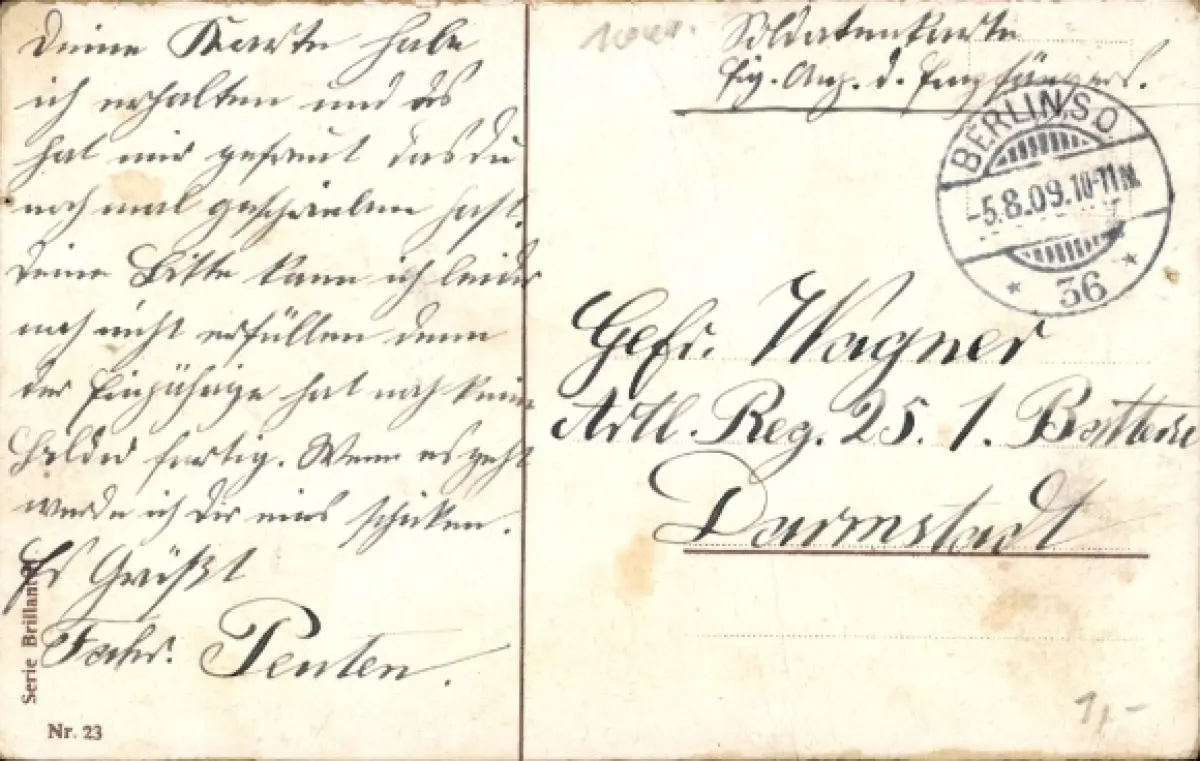 Deine Karte habe
ich erhalten und es
hat mir gefreut das Du
noch mal geschrieben hast.
Deine Bitte kann ich leider
noch nicht erfüllen denn
der Einjährige hat noch keine
Bilder fertig. Wenn es geht
werde ich Dir eins schicken.
Es Grüßt
Fahr. Penten.
Serie Brillant
Nr. 23
Soldatenkarte
Eig. Ang. d. Empfängers.
BERLIN, S.O.
-5.8.09.10-11N.
* 36 *
Gefr. Wagner
Artl. Reg. 25. 1. Batterie
Darmstadt
1,-